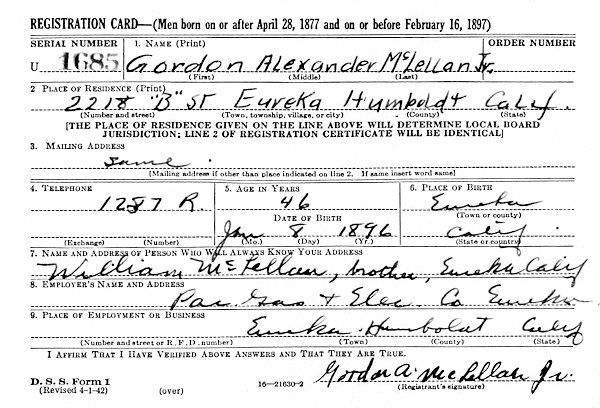 REGISTRATION CARD—(Men born on or after April 28, 1877 and on or before February 16, 1897)
SERIAL NUMBER 1. NAME (Print) ORDER NUMBER
U 1685 Gordon Alexander McLellan Jr.
(First) (Middle) (Last)
2 PLACE OF RESIDENCE (Print)
2218 "B" St Eureka Humboldt Calif.
(Number and street) (Town, township, village, or city) (County) (State)
[THE PLACE OF RESIDENCE GIVEN ON THE LINE ABOVE WILL DETERMINE LOCAL BOARD
JURISDICTION; LINE 2 OF REGISTRATION CERTIFICATE WILL BE IDENTICAL]
3. MAILING ADDRESS
Same.
[Mailing address if other than place indicated on line 2. If same insert word same]
4. TELEPHONE 5. AGE IN YEARS 6. PLACE OF BIRTH
1287 R. 46 Eureka
DATE OF BIRTH (Town or county)
Jan 8 1896 Calif.
(Exchange) (Number) (Mo.) (Day) (Yr.) (State or country)
7. NAME AND ADDRESS OF PERSON WHO WILL ALWAYS KNOW YOUR ADDRESS
William McLellan, brother, Eureka Calif
8. EMPLOYER'S NAME AND ADDRESS
Pac. Gas & Elec. Co Eureka
9. PLACE OF EMPLOYMENT OR BUSINESS
Eureka Humboldt Calif
(Number and street or R. F. D. number) (Town) (County) (State)
I AFFIRM THAT I HAVE VERIFIED ABOVE ANSWERS AND THAT THEY ARE TRUE.
Gordon A. McLellan Jr.
D. S. S. Form 1 (Registrant's signature)
(Revised 4-1-42) (over) 16—21630-2